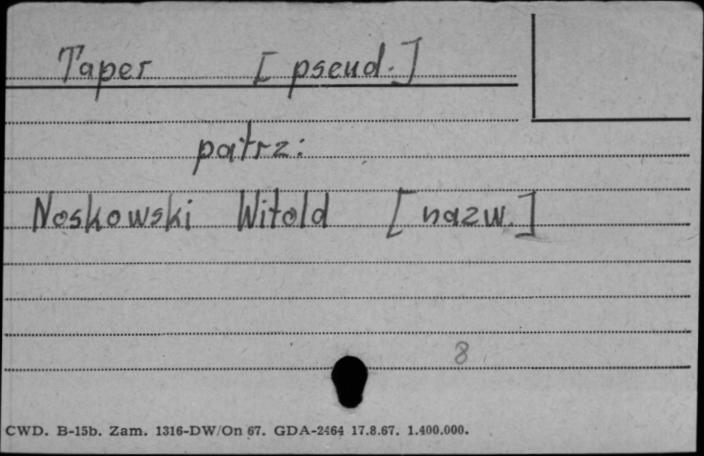 Taper [pseud.]
patrz:
Noskowski Witold [nazw.]
8
CWD. B-15b. Zam. 1316-DW/On 67. GDA-2464 17.8.67. 1.400.000.